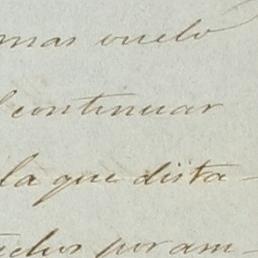 mas vuelo
continuar
la que dista-
por am-